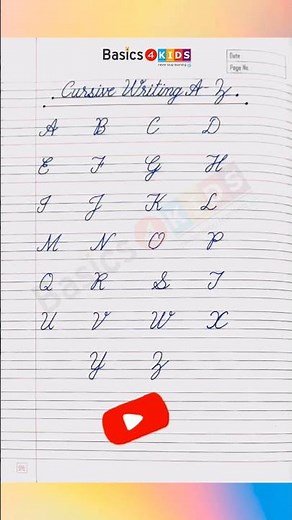 Basics 4 KIDS
Date
Page No.
Cursive Writing A-Z
A B C D
E F G H
I J K L
M N O P
Q R S T
U V W X
Y Z
Basics 4 KIDS